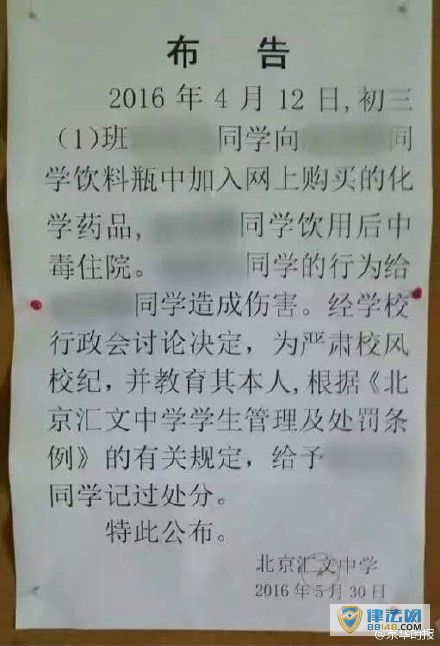 布 告
2016 年 4 月 12 日,初三
(1)班 同学向 同
学饮料瓶中加入网上购买的化
学药品, 同学饮用后中
毒住院。 同学的行为给
同学造成伤害。经学校
行政会讨论决定，为严肃校风
校纪,并教育其本人,根据《北
京汇文中学学生管理及处罚条
例》的有关规定，给予
同学记过处分。
特此公布。
北京汇文中学
2016 年 5 月 30 日
律法网
88148.com
@京华时报